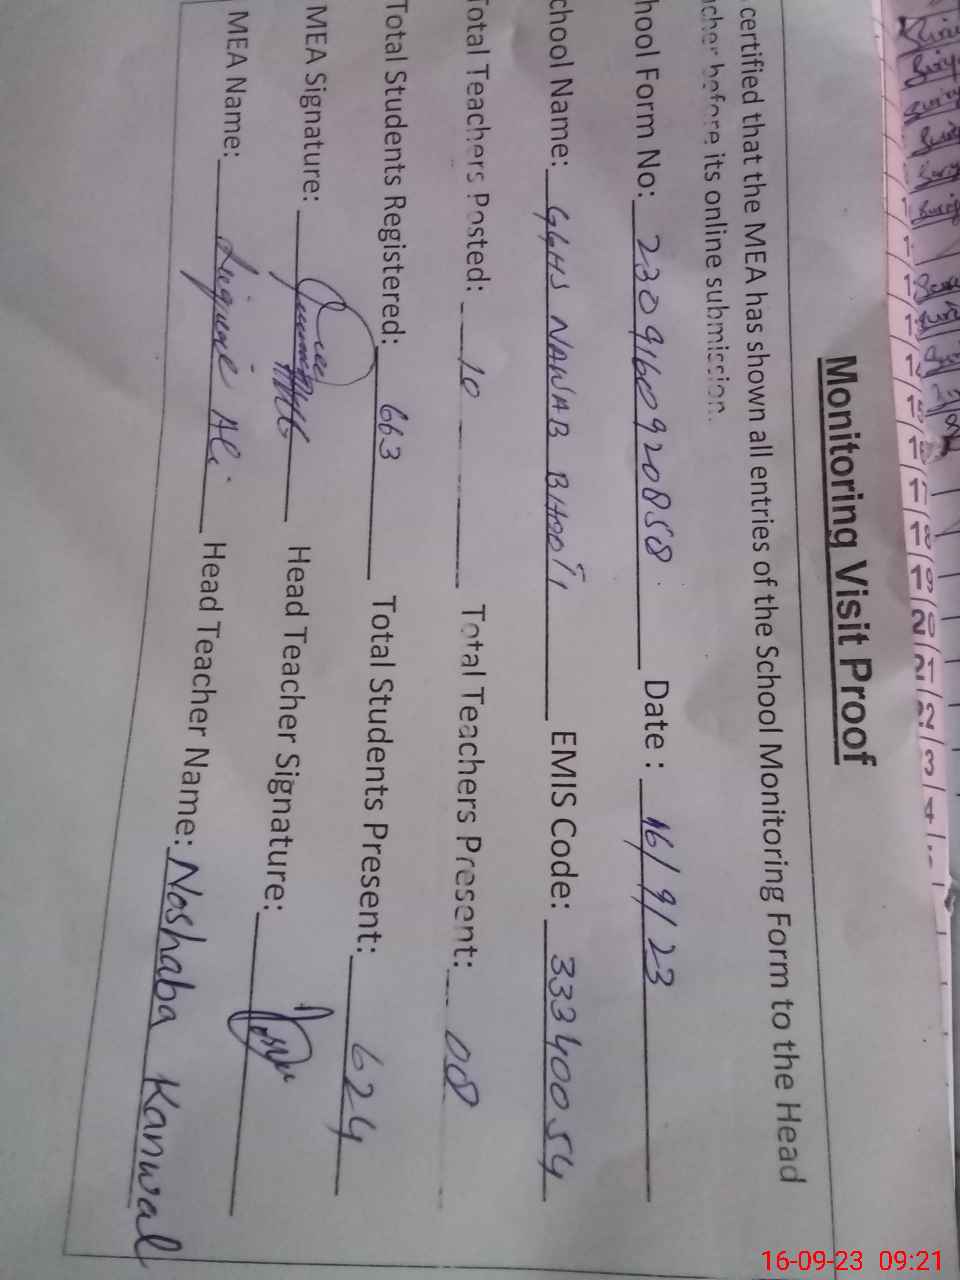 Monitoring Visit Proof
certified that the MEA has shown all entries of the School Monitoring Form to the Head
cher before its online submission.
hool Form No: 2309160920858 Date : 16/9/23
chool Name: GGHS NAWAB EMIS Code: 33340054
Total Teachers Posted: 10 Total Teachers Present: 08
Total Students Registered: 663 Total Students Present: 624
MEA Signature: Head Teacher Signature:
MEA Name: Ali Head Teacher Name: Noshaba Kanwal
16-09-23 09:21